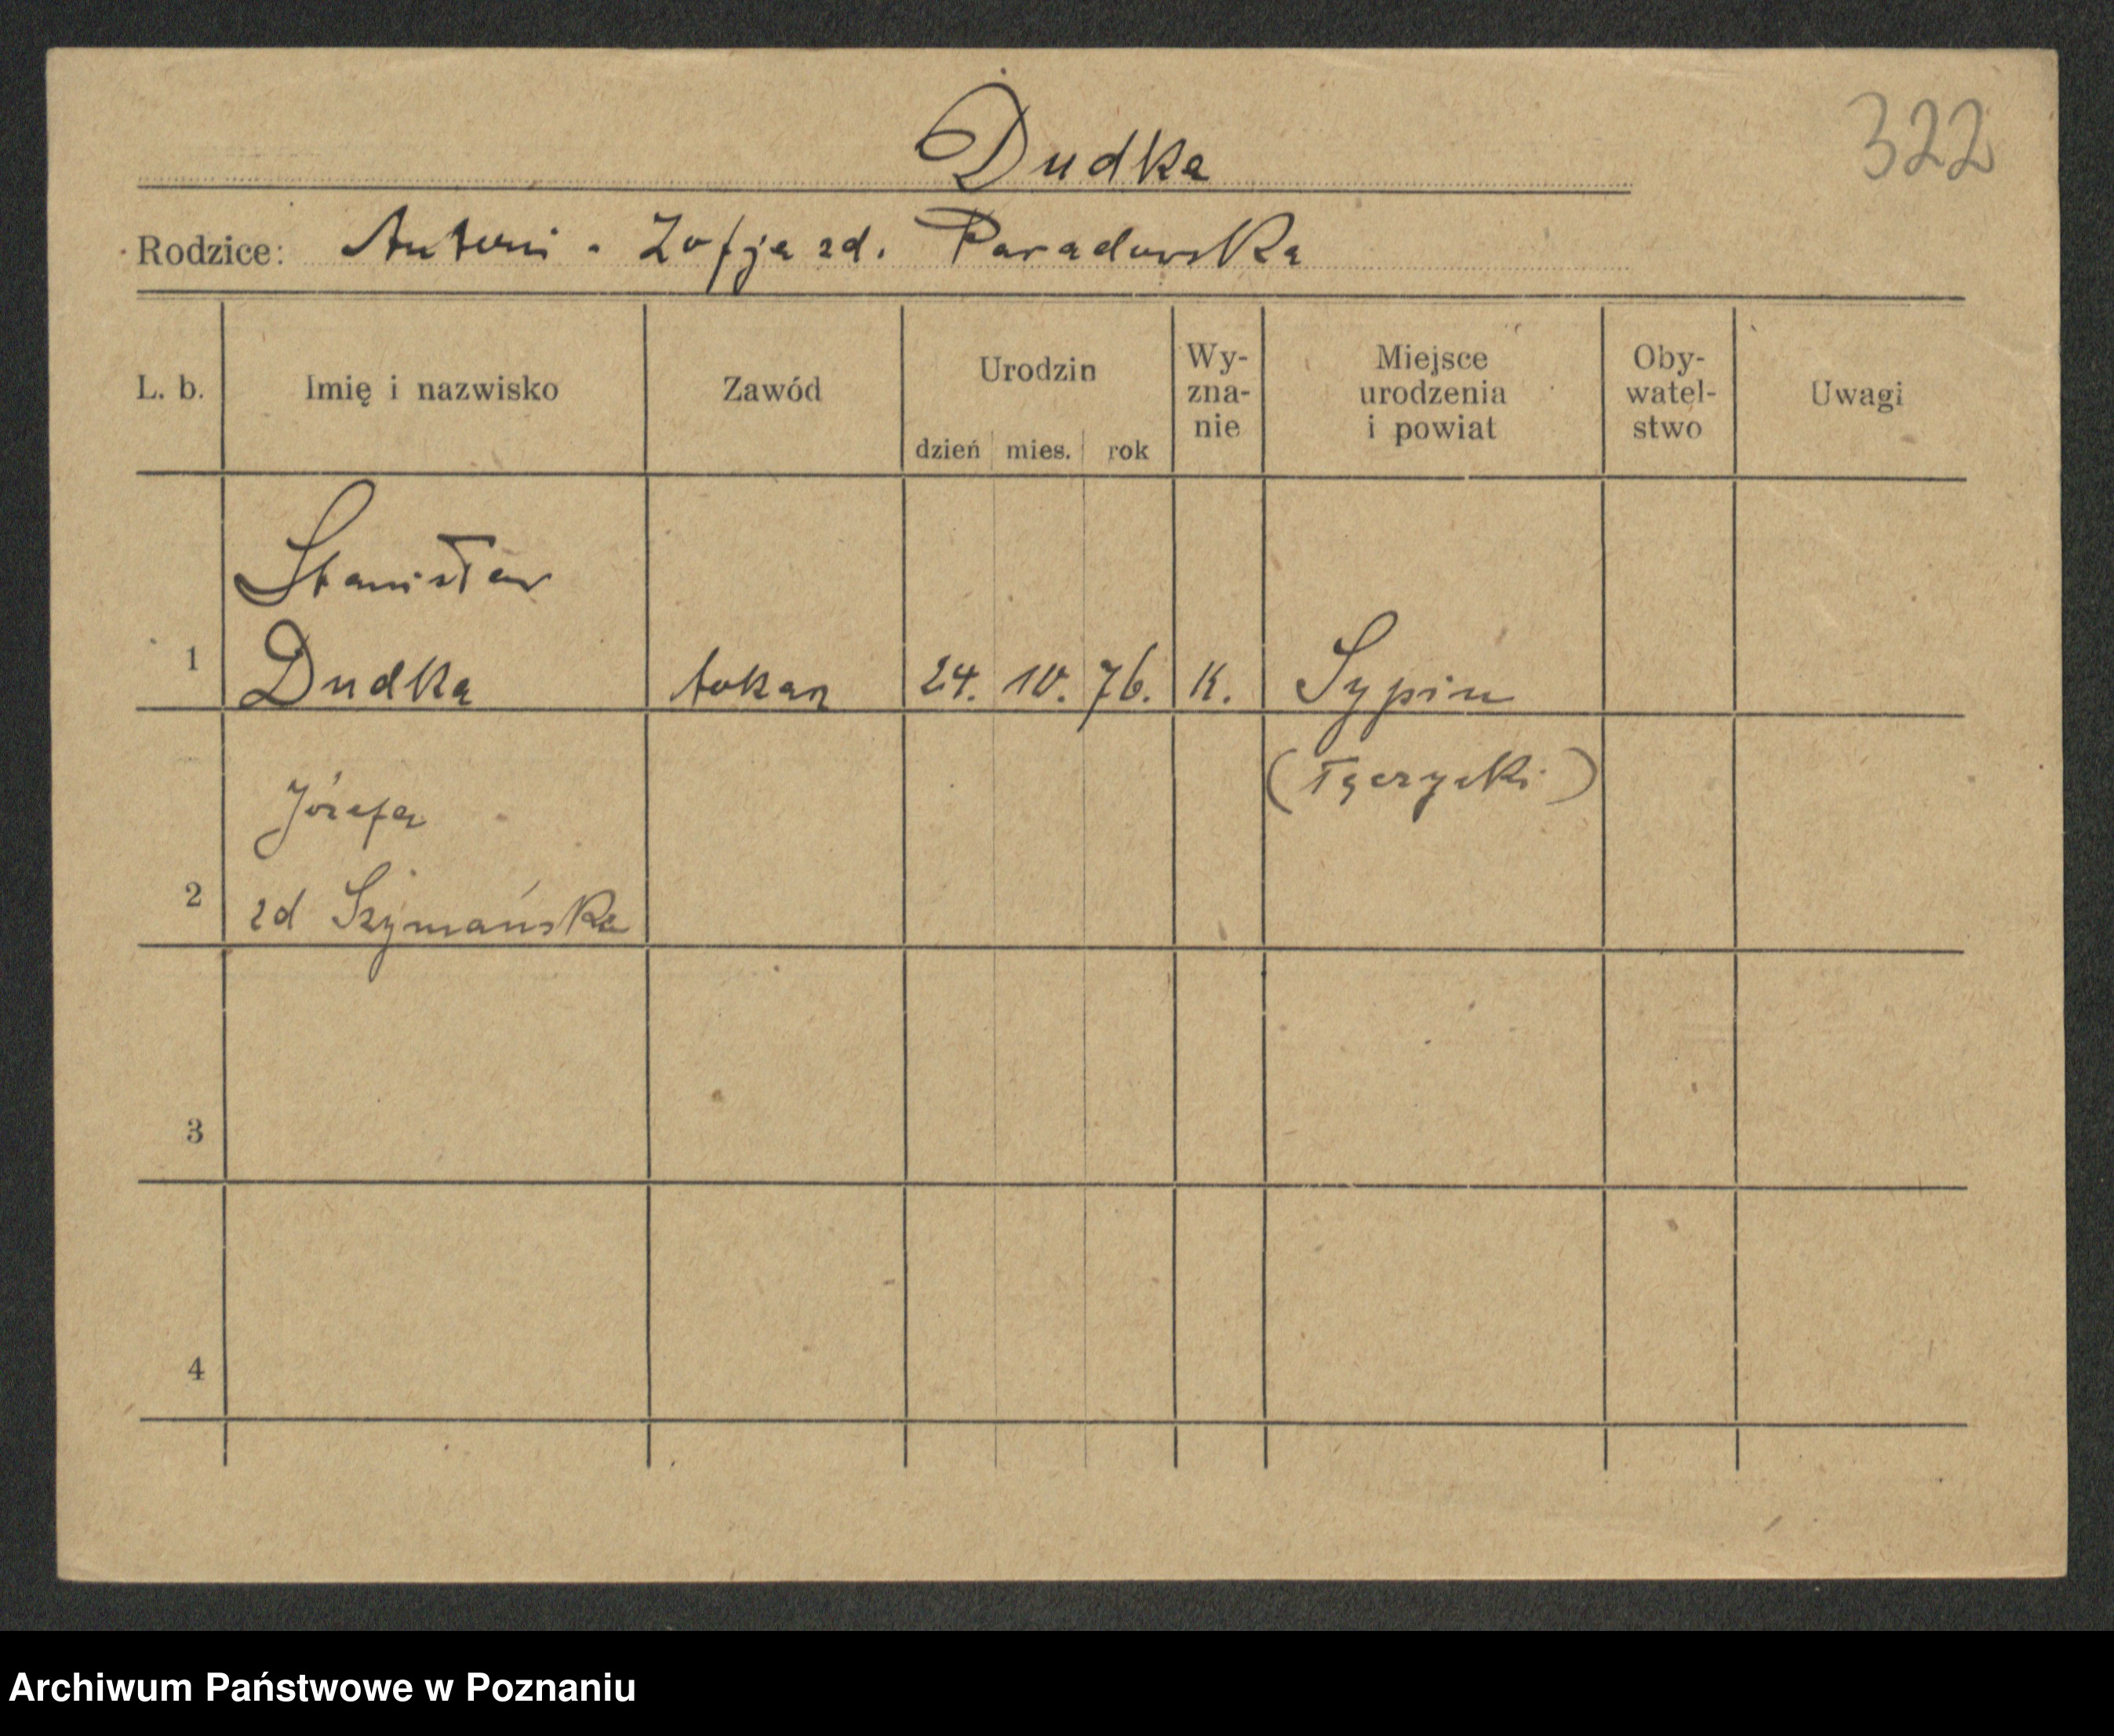 322
Dudka
Rodzice: Antoni - Zofja zd. Paradowska
L. b. Imię i nazwisko Zawód Urodzin dzień mies. rok Wy-zna-nie Miejsce urodzenia i powiat Oby-watel-stwo Uwagi
Stanisław
1 Dudka tokarz 24. 10. 76. K. Sypin
(Łęczycki)
Józefa
2 zd Szymańska
3
4
Archiwum Państwowe w Poznaniu